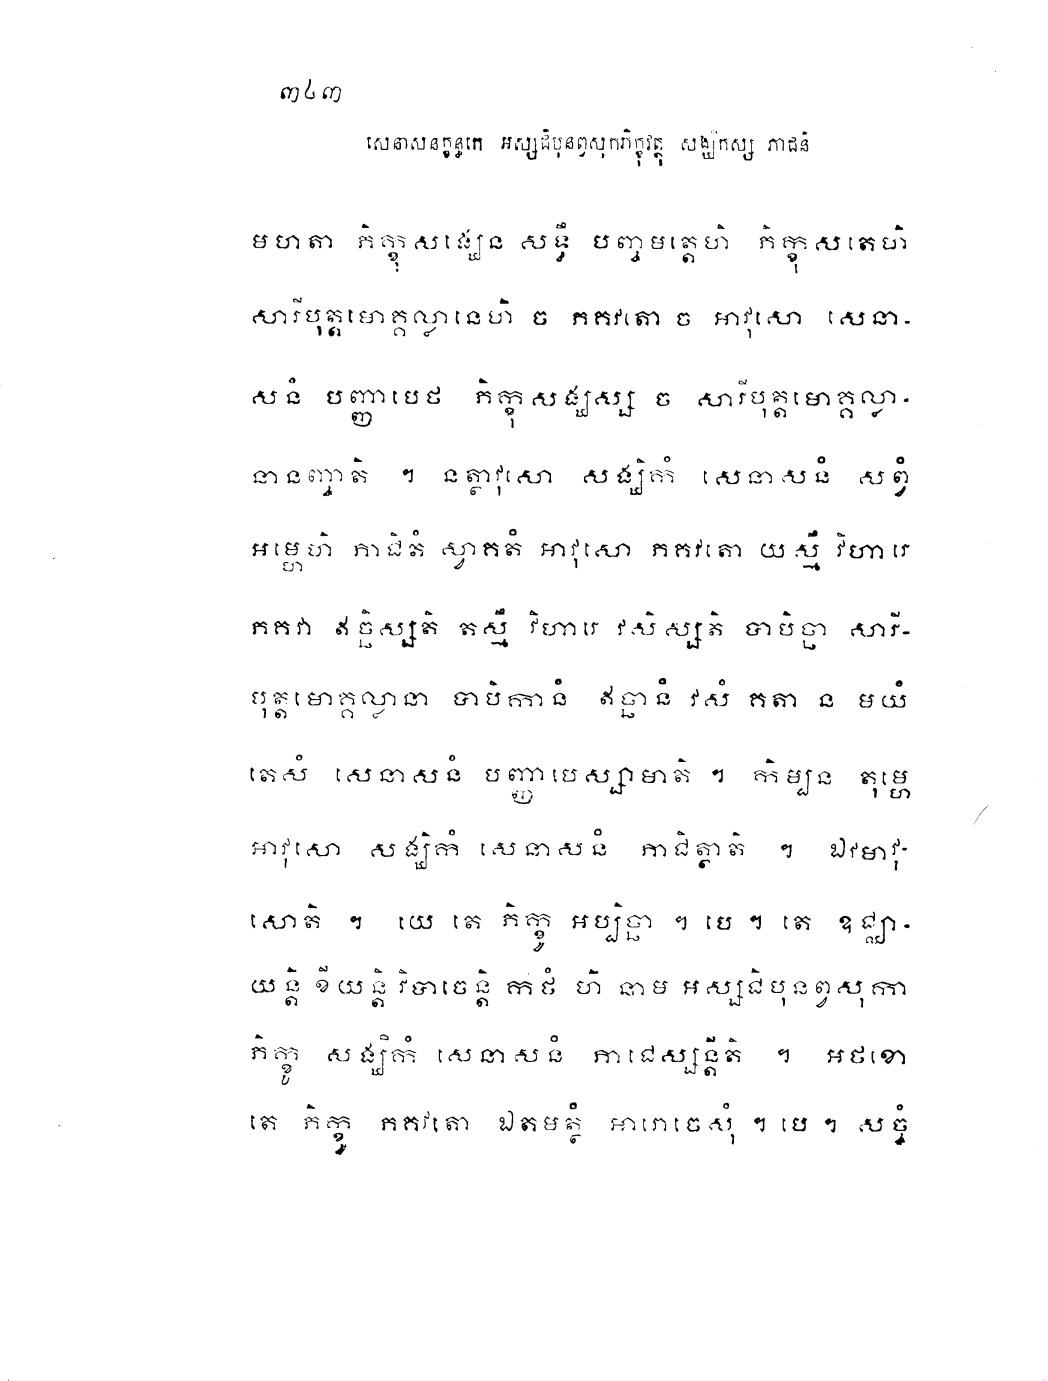 ៣៤៣
សេនាសនក្ខន្ធកេ អស្សជិបុនព្វសុកភិក្ខុវត្ថុ សង្ឃិកស្ស ភាជនំ
មហតា ភិក្ខុសង្ឃេន សទ្ធឹ បញ្ចមត្តេហិ ភិក្ខុសតេហិ
សារីបុត្តមោគ្គល្លានេហិ ច ភគវតោ ច អាវុសោ សេនា-
សនំ បញ្ញាបេថ ភិក្ខុសង្ឃស្ស ច សារីបុត្តមោគ្គល្លា-
នានញ្ចាតិ ។ នត្ថាវុសោ សង្ឃិកំ សេនាសនំ សព្វំ
អម្ហេហិ ភាជិតំ ស្វាគតំ អាវុសោ ភគវតោ យស្មឹ វិហារេ
ភគវា ឥច្ឆិស្សតិ តស្មឹ វិហារេ វសិស្សតិ បាបិច្ឆា សារី-
បុត្តមោគ្គល្លានា បាបិកានំ ឥច្ឆានំ វសំ គតា ន មយំ
តេសំ សេនាសនំ បញ្ញាបេស្សាមាតិ ។ កិម្បន តុម្ហេ
អាវុសោ សង្ឃិកំ សេនាសនំ ភាជិត្ថាតិ ។ ឯវមាវុ-
សោតិ ។ យេ តេ ភិក្ខូ អប្បិច្ឆា ។ បេ ។ តេ ឧជ្ឈា-
យន្តិ ខីយន្តិ វិបាចេន្តិ កថំ ហិ នាម អស្សជិបុនព្វសុកា
ភិក្ខូ សង្ឃិកំ សេនាសនំ ភាជេស្សន្តីតិ ។ អថខោ
តេ ភិក្ខូ ភគវតោ ឯតមត្ថំ អារោចេសុំ ។ បេ ។ សច្ចំ